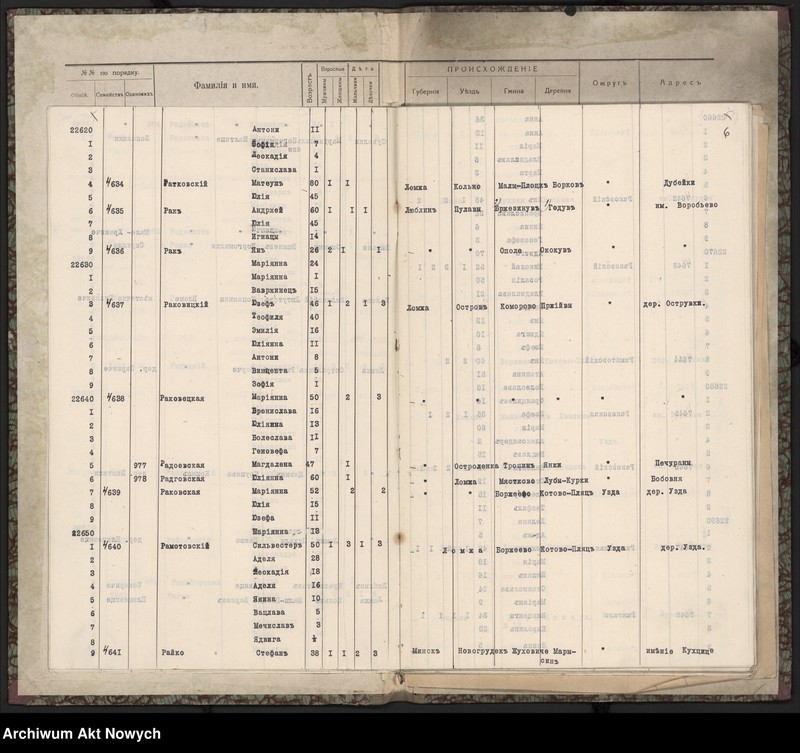 №№ по порядку. Фамилія и имя. Возрость Взрослые Дѣти ПРОИСХОЖДЕНІЕ Округъ Адресъ
Общій. Семействъ Одинокихъ Мужчины Женщины Мальчики Дѣвочки Губернія Уѣздъ Гмина Деревня
6
22620 Антони II
I Зофія 7
2 Леокадія 4
3 Станислава I
4 4/634 Ратковскій Матеушъ 80 I I Ломжа Кольно Малы-Плоцкъ Борковъ " Дубейки
5 Юлія 45
6 4/635 Ракъ Андржей 60 I I I Люблинъ Пулавы Годувъ " им. Воробьево
7 Юлія 45
8 Игнацы I4
9 4/636 Ракъ Янъ 26 2 I I " " Ополе Ококувъ " "
22630 Маріянна 24
I Маріянна I
2 Вавржинецъ I5
3 4/637 Раковицкій Юзефъ 46 I 2 I 3 Ломжа Островъ Коморово Пржіймы " дер. Острувки.
4 Теофиля 40
5 Эмилія I6
6 Юліянна II
7 Антони 8
8 Винцента 5
9 Зофія I
22640 4/638 Раковецкая Маріянна 50 2 3 " " " " " "
I Бронислава I6
2 Юліянна I3
3 Болеслава II
4 Геновефа 7
5 977 Радоевская Магдалена 47 I " Остроленка Трошинъ Янки " Печураны
6 978 Радговская Юліянна 60 I " Ломжа Мястково Лубы-Курки " Бобовня
7 4/639 Раковская Маріянна 52 2 2 " " Боржеево Котово-Пляцъ Узда дер. Узда
8 Юлія I5
9 Юзефа II
22650 Маріянна I3
I 4/640 Рамотовскій Сильвестеръ 50 I 3 I 3 Ломжа Боржеево Котово-Пляцъ Узда дер. Узда.
2 Аделя 28
3 Леокадія I8
4 Аделя I6
5 Янина I0
6 Вацлава 5
7 Мечиславъ 3
8 Ядвига ½
9 4/641 Райко Стефанъ 38 I I 2 3 Минскъ Новогрудекъ Жуховиче Мары- " имѣніе Кухцице
синъ
Archiwum Akt Nowych